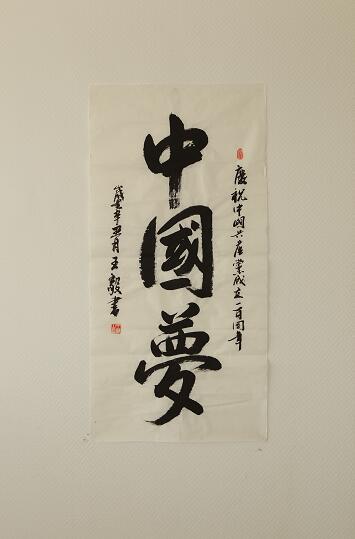 慶祝中國共產黨成立一百周年
中國夢
歲在辛丑月王毅書